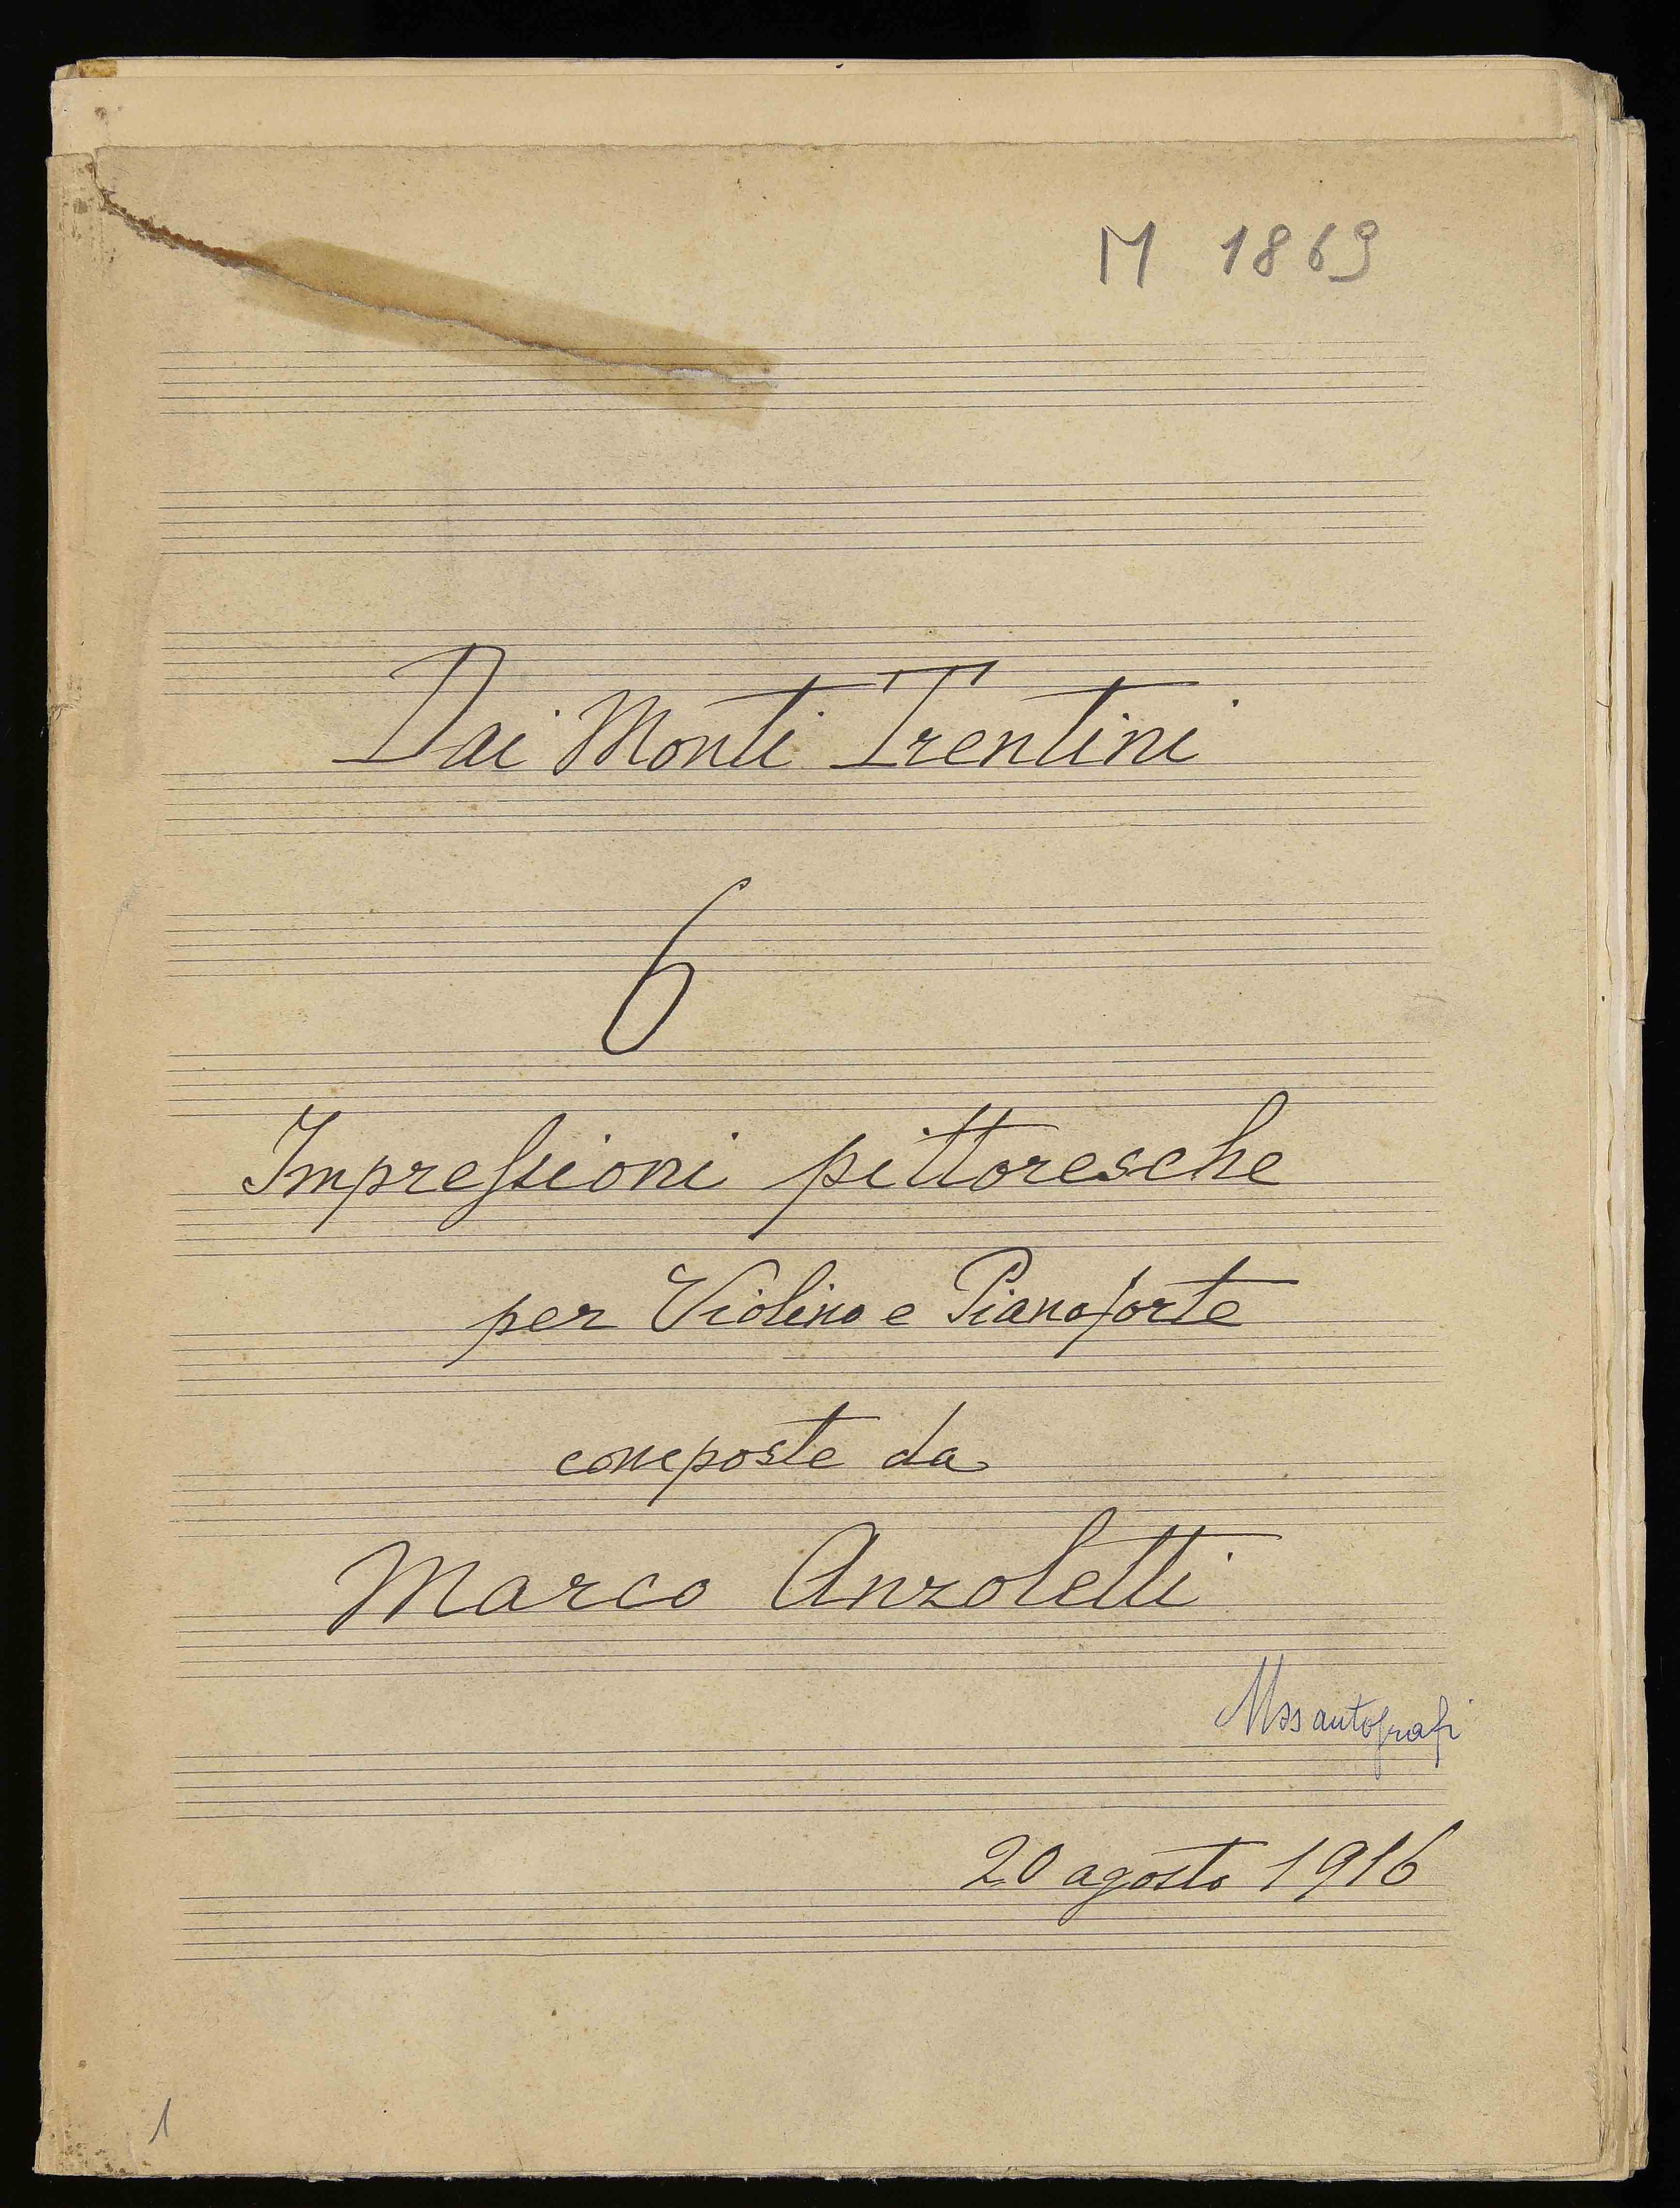 M 1869
Dai Monti Trentini
6
Impressioni pittoresche
per Violino e Pianoforte
composte da
Marco Anzoletti
Mss autografi
20 agosto 1916
1